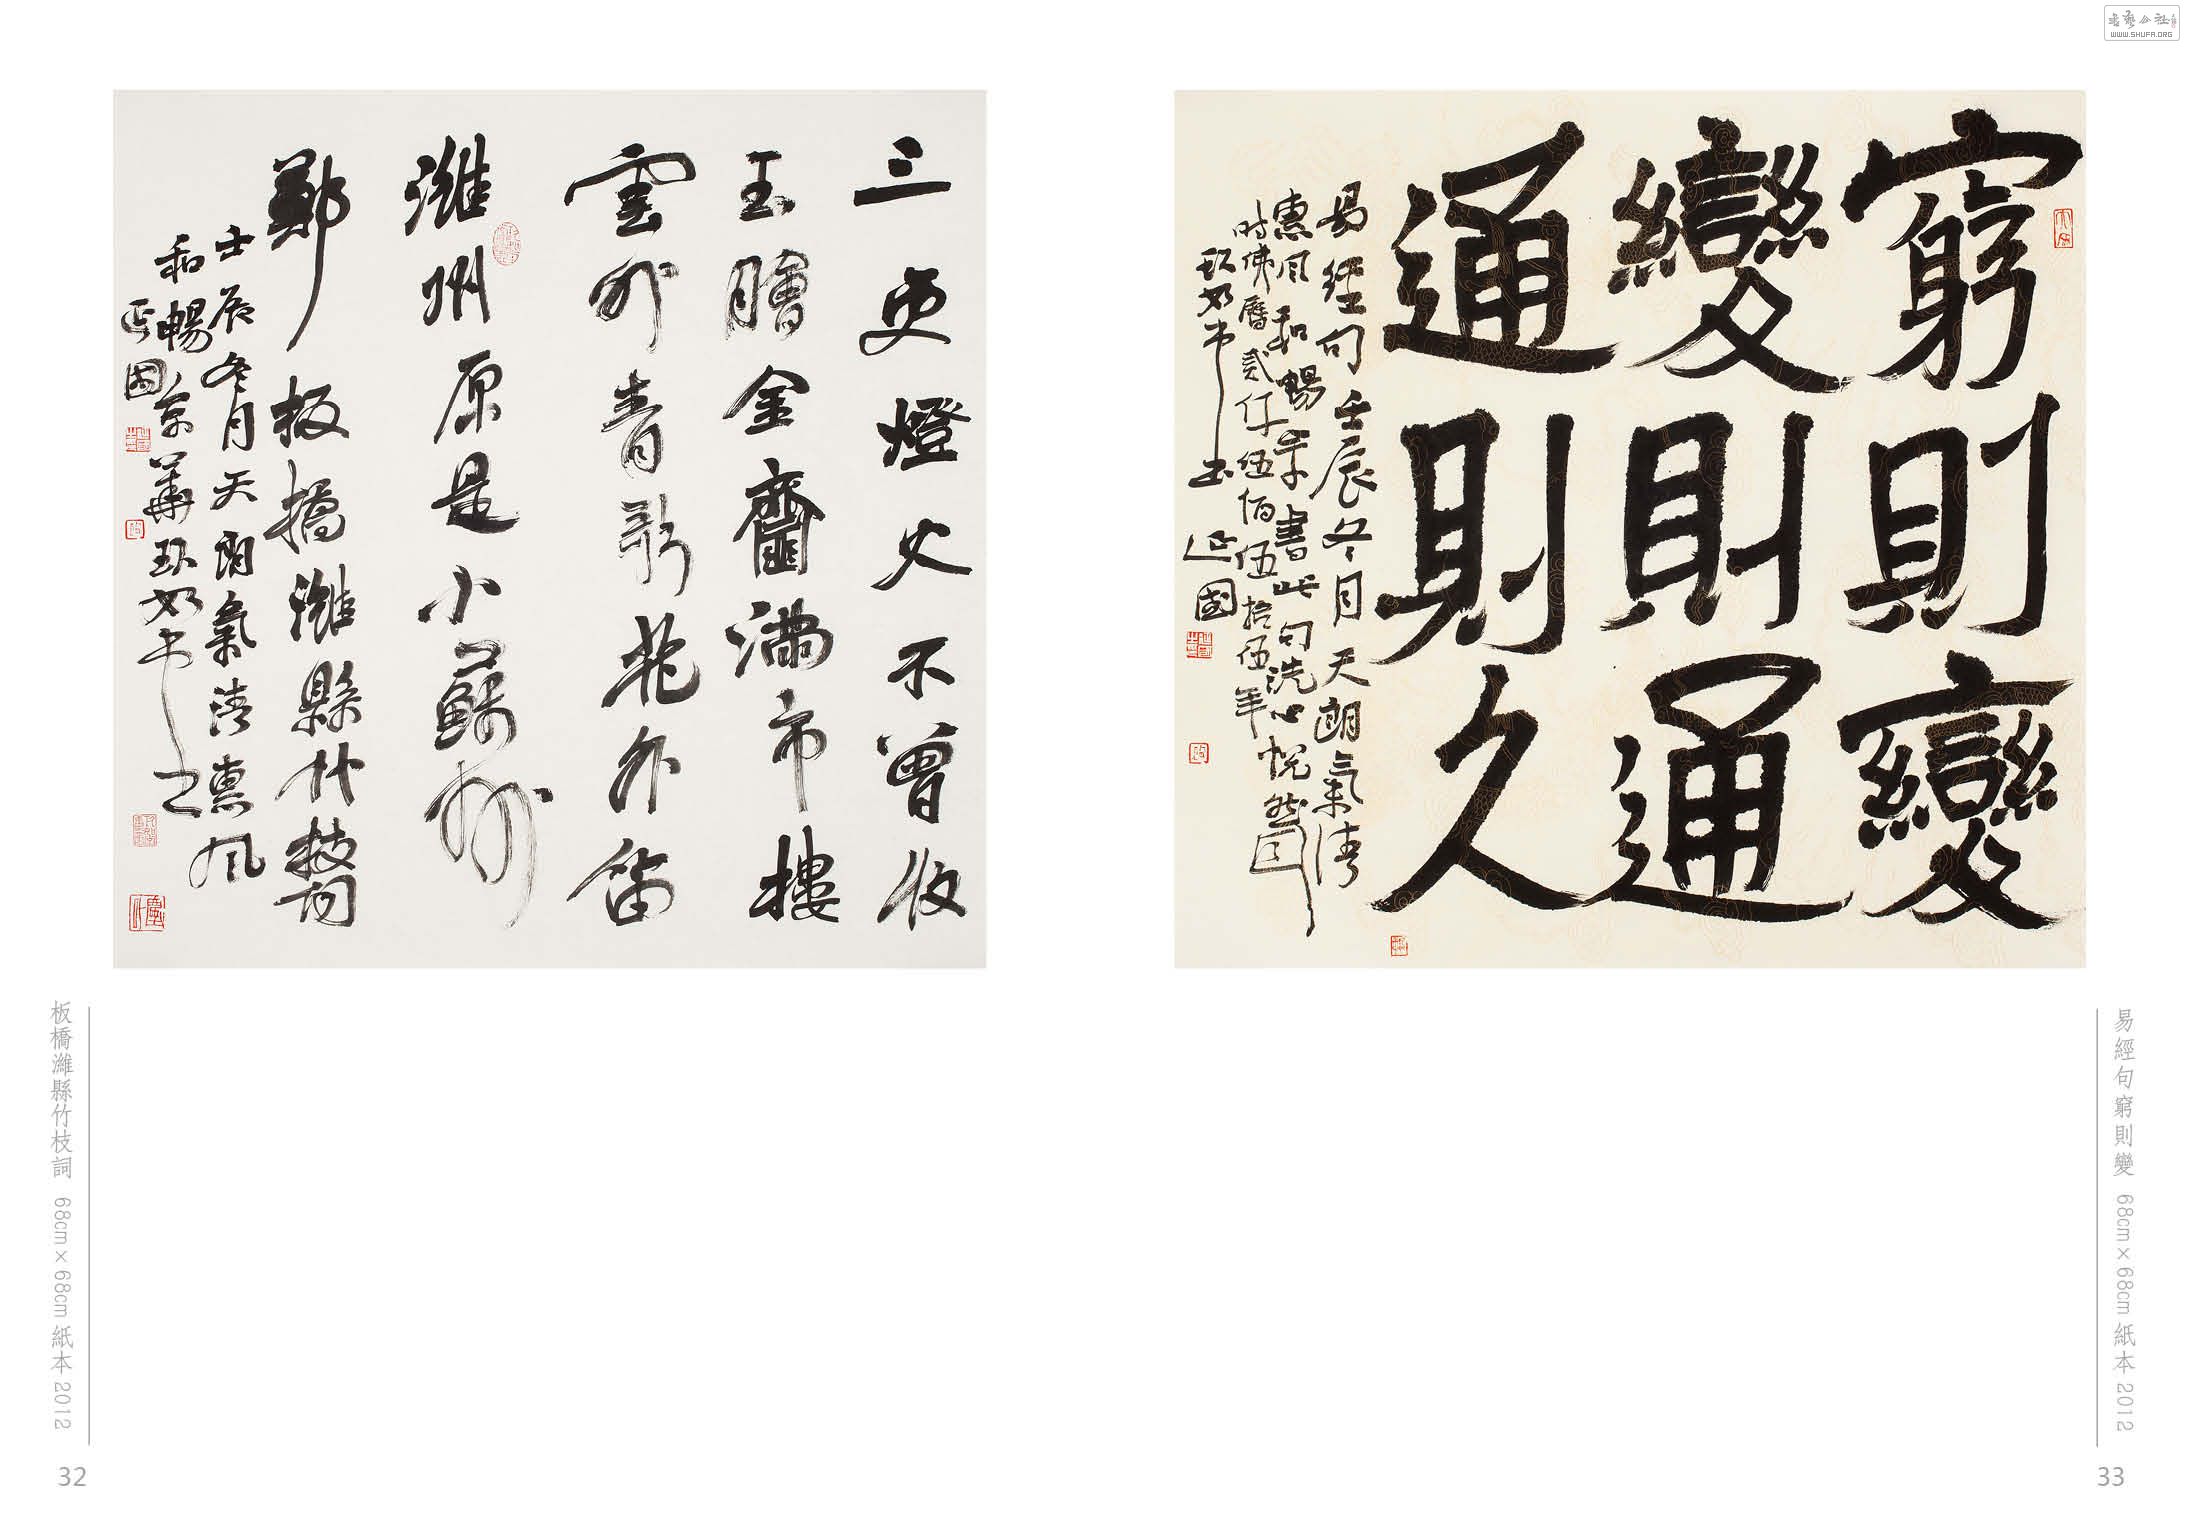 三更燈火不曾收
玉膾金齏滿市樓
雲外青歌花外笛
濰州原是小蘇州
鄭板橋濰縣竹枝詞
壬辰冬月天朗氣清惠風
和暢京華玖如
延國
板橋濰縣竹枝詞 68cm×68cm 紙本 2012
32
窮則變
變則通
通則久
易經句壬辰冬月天朗氣清
惠風和暢書此句洗心悅
時佛曆貳仟伍佰伍拾伍年
玖如
延國
易經句窮則變 68cm×68cm 紙本 2012
33
WWW.SHUFA.ORG